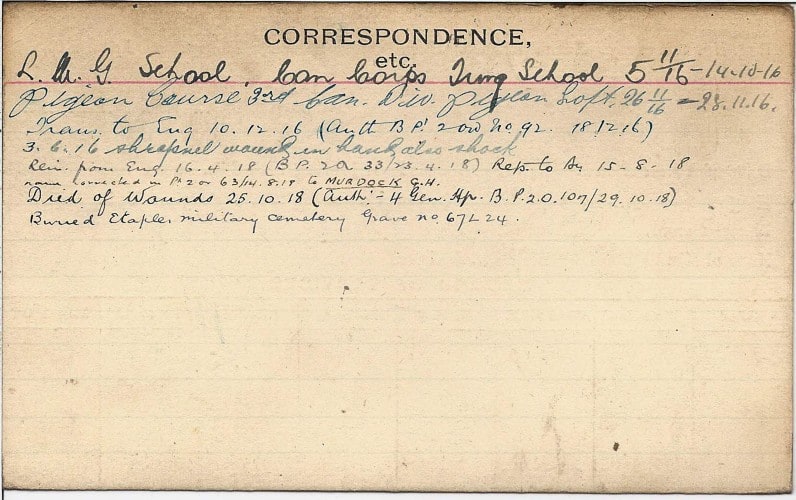 CORRESPONDENCE,
etc.
L. M. G School, Can Corps Trng School 5 11/16 - 14.10.16
Pigeon Course 3rd Can. Div. pigeon Loft. 26 11/16 - 28.11.16.
Trans. to Eng 10.12.16 (Auth B.P. 2 No. 92. 18/12/16)
3.6.16 shrapnel wound in also shock
from Eng. 16.4.18 (B.P. 20 33/23.4.18) Rep. to 15-8-18
name corrected in Pt 2 or 63/14.8.18 to MURDOCK G.H.
Died of Wounds 25.10.18 (Auth:- 4 Gen. Hp. B.P.2.0.107/29.10.18)
Buried Etaples military cemetery Grave no. 67L24.